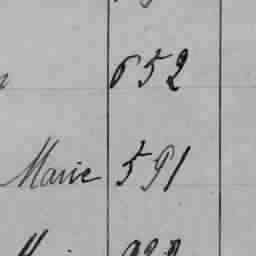 652
Marie 591